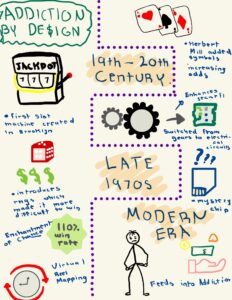 ADDICTION
BY DE$IGN
JACKPOT
7 7 7
• first slot
machine created
in Brooklyn
19th-20th
CENTURY
• Herbert
Mill added
symbols
increasing
odds
Enhances
Switched from
gears to electri-
cal circuits
LATE
1970s
$$$
• introduces
rng which
made it more
difficult to win
• mystery
chip
Enchantment
of Chance
110%
win
rate
MODERN
ERA
Virtual
Reel
Mapping
Feeds into Addiction